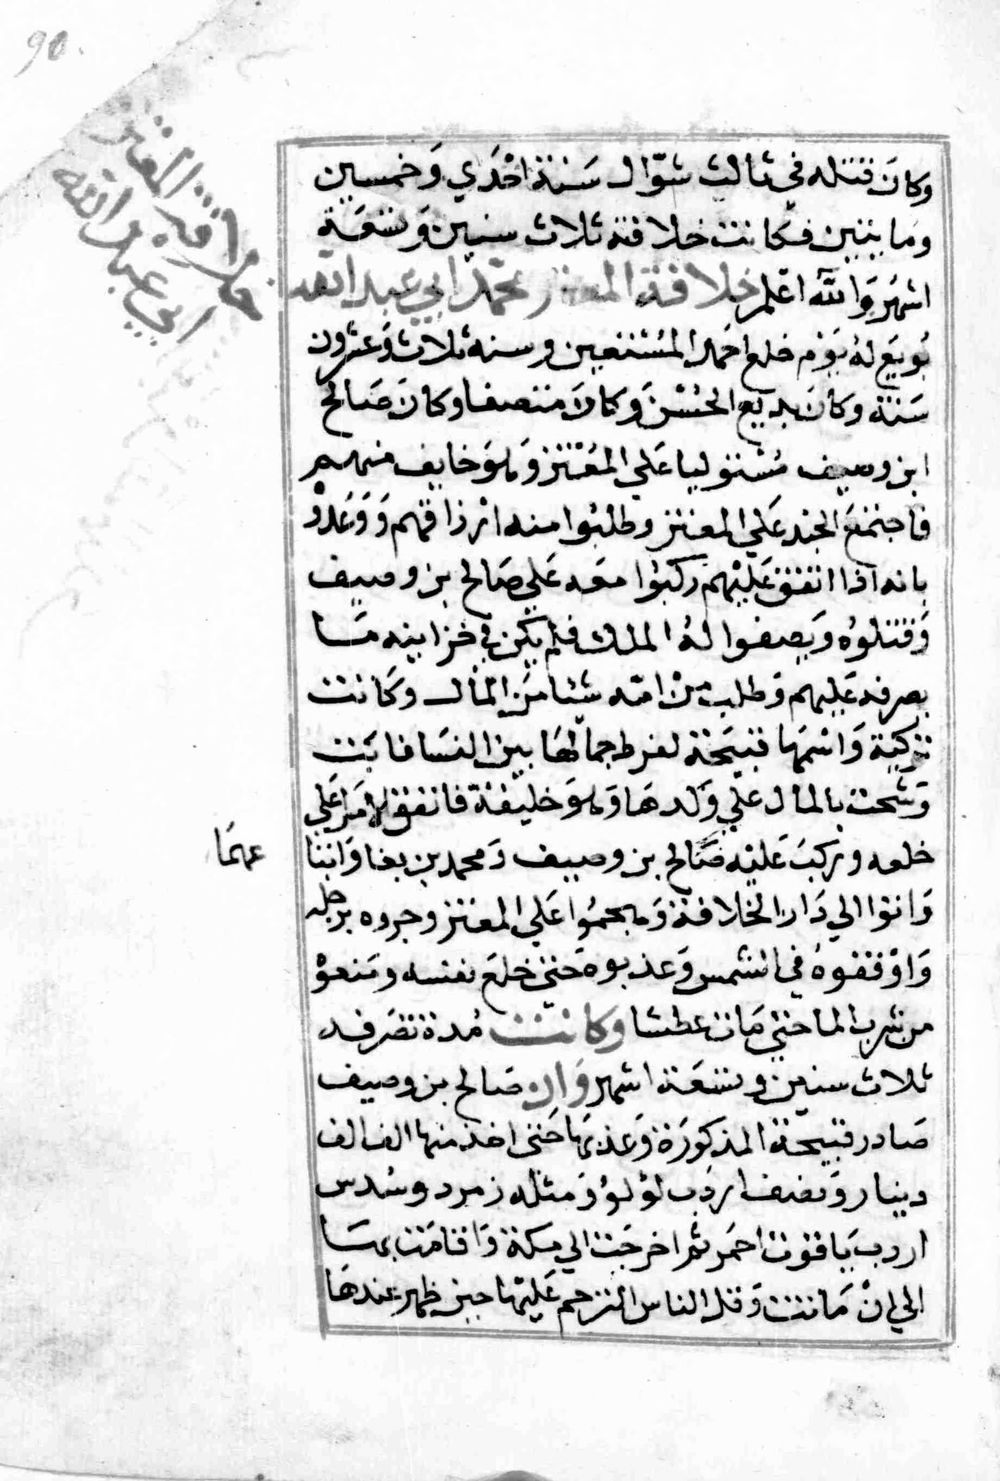 90.
خلافة المعتز
ابي عبد الله
وكان قتله في ثالث شوّال سنة احدي وخمسين
ومايتين فكانت خلافته ثلاث سنين وتسعة
اشهر والله اعلم خلافة المعتز محمد ابي عبد الله
بويع له يوم خلع احمد المستعين وسنه ثلاث وعشرون
سنة وكان بديع الحسن وكان منتصفا وكان صالح
ابن وصيف مستوليا علي المعتز وهو خايف منهم
فاجتمع الجند علي المعتز وطلبوا منه ارزاقهم ووعدو
بانه اذا انفق عليهم ركبوا معه علي صالح بن وصيف
وقتلوه ويصفوا له الملك فلم يكن في خزاينه ما
يصرفه عليهم وطلب من امه شئا من المال وكانت
تركية واسمها قبيحة لفرط جمالها بين النسا فابت
وشحت بالمال علي ولدها وهو خليفة فاتفق الامر علي
خلعه وركب عليه صالح بن وصيف ومحمد بن بغا وابنا
عهما
واتوا الي دار الخلافة وهجموا علي المعتز وجروه برجله
واوقفوه في الشمس وعذبوه حتي خلع نفسه ومنعو
من شرب الما حتي مات عطشا وكانت مدة تصرفه
ثلاث سنين وتسعة اشهر وان صالح بن وصيف
صادر قبيحة المذكورة وعذبها حتي اخذ منها الف الف
دينار ونصف اردب لؤلؤ ومثله زمرد وسدس
اردب ياقوت احمر ثم اخرجت الي مكة واقامت بها
الي ان ماتت وقل الناس الترحم عليها حين ظهر عندها